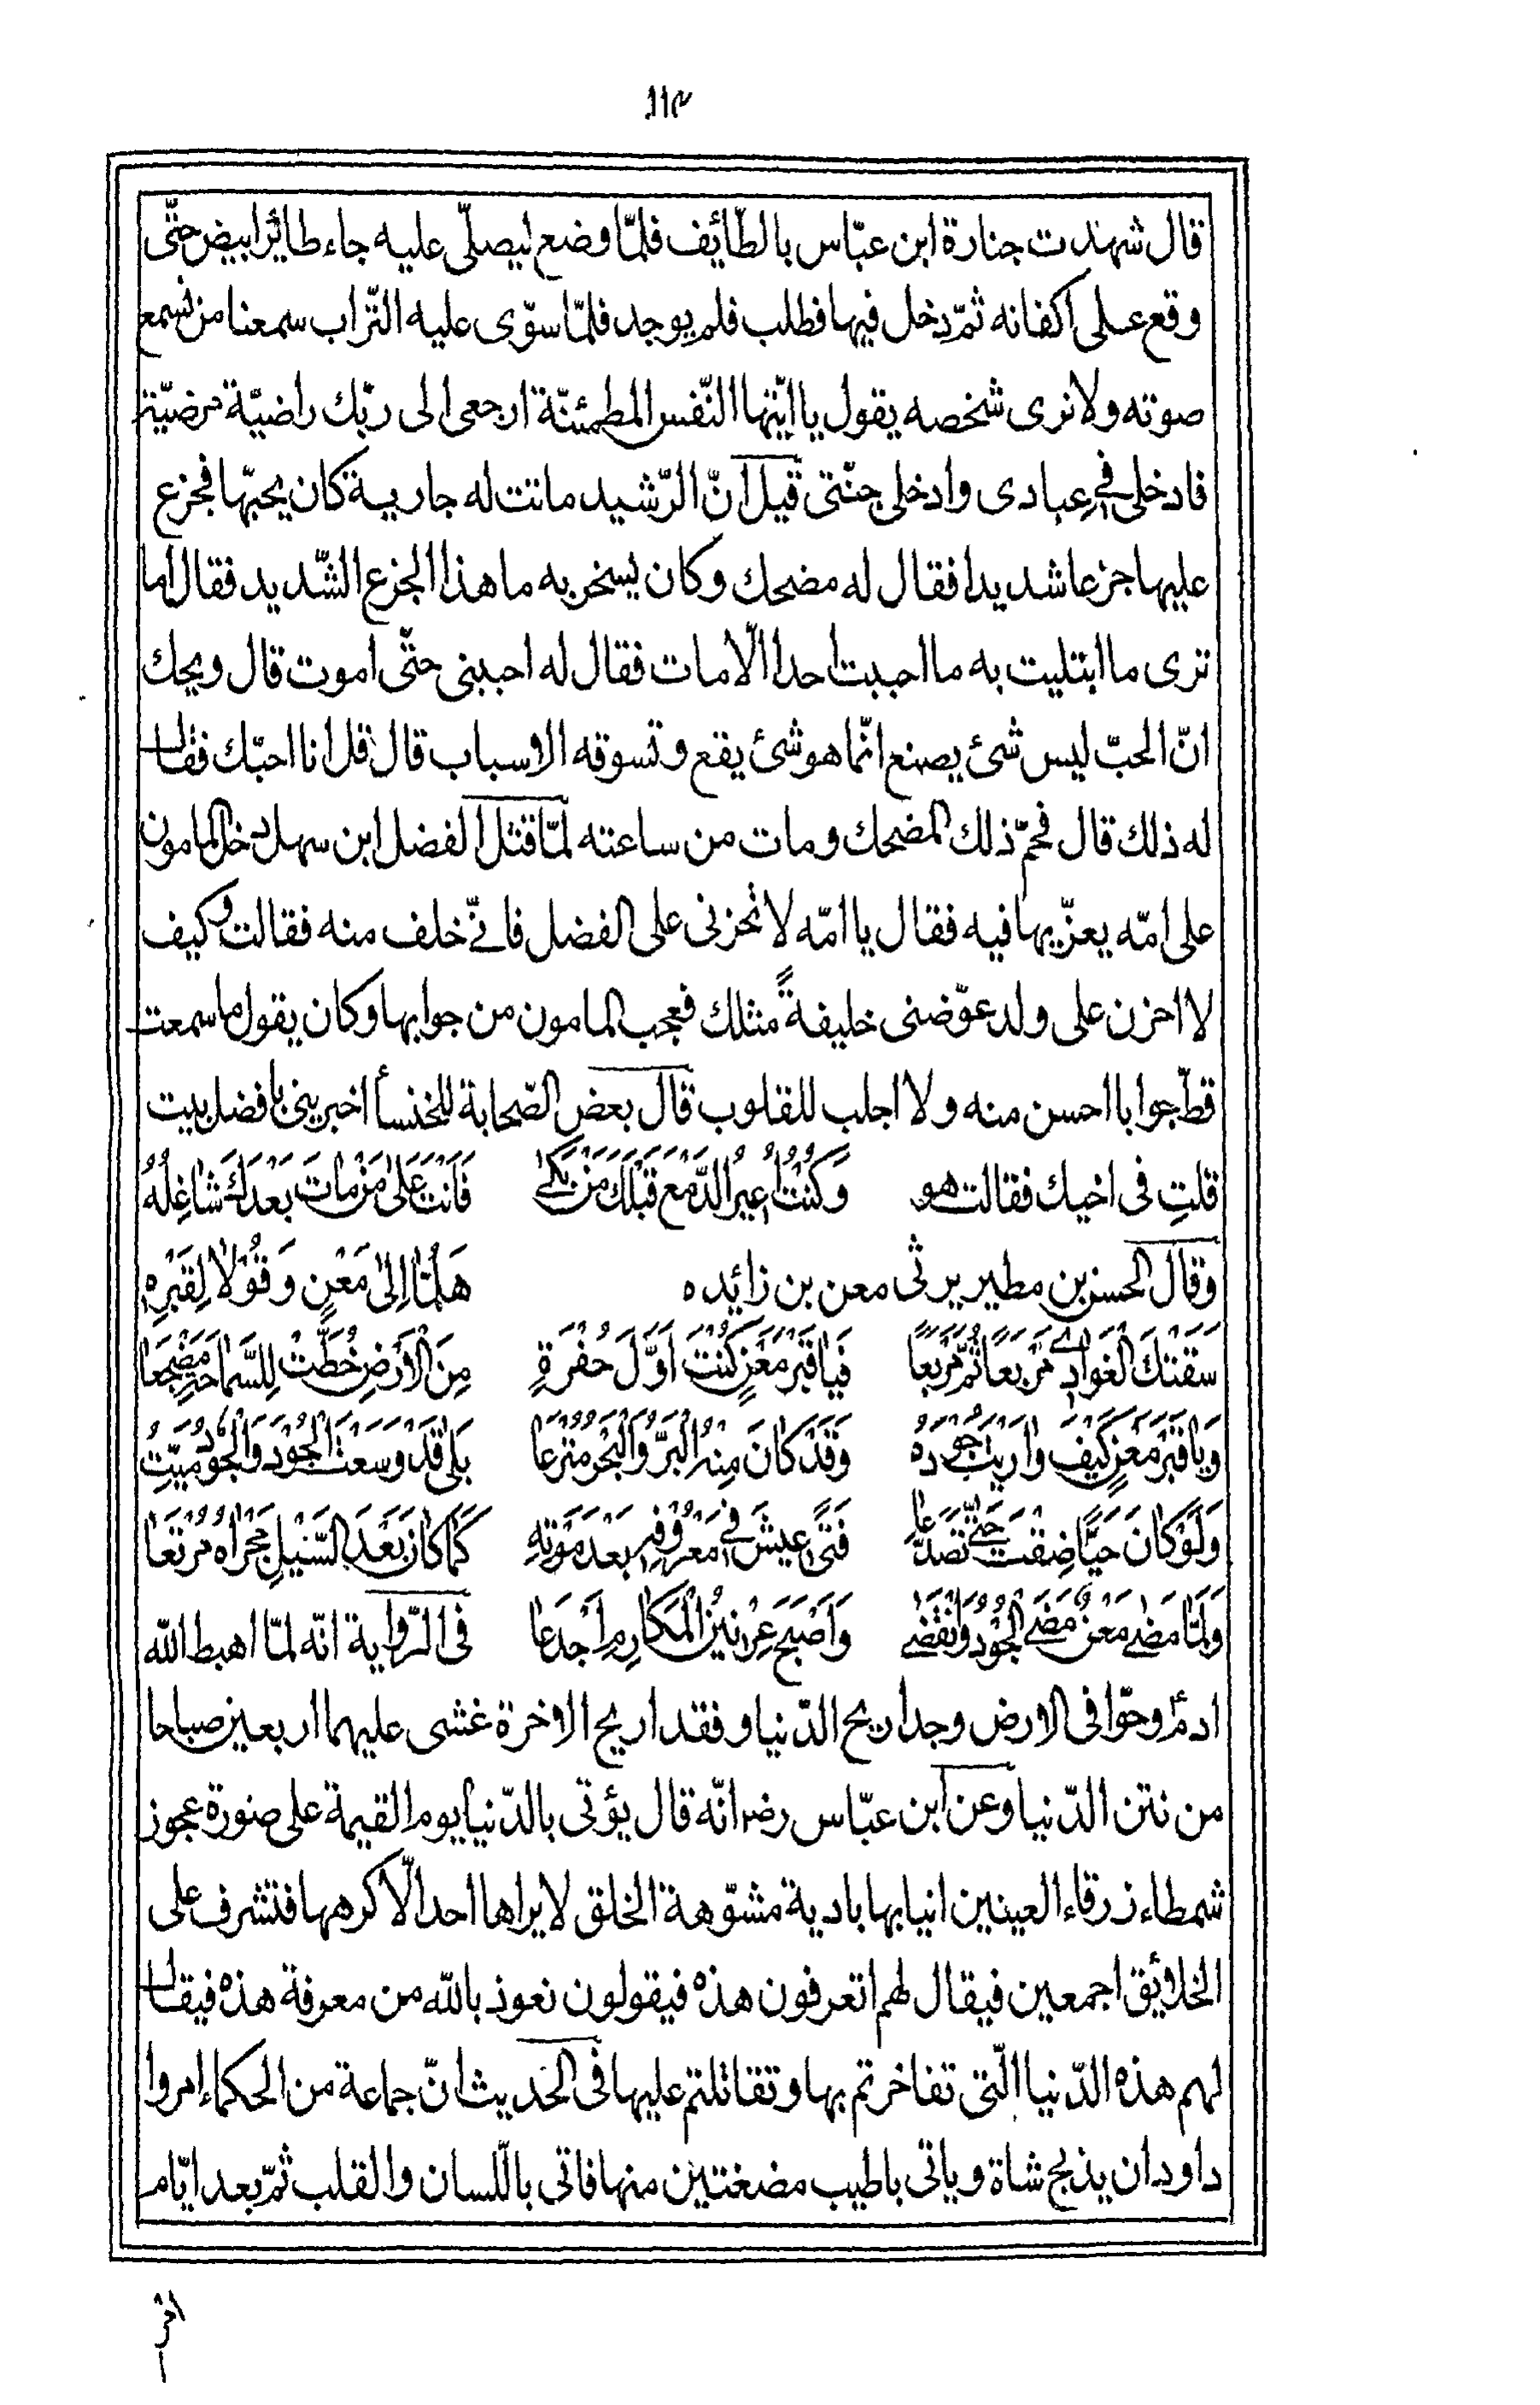 ١١٣
قال شهدت جنازة ابن عبّاس بالطّائف فلمّا وضع ليصلّى عليه جاء طائر ابيض حتّى
وقع على اكفانه ثمّ دخل فيها فطلب فلم يوجد فلمّا سوّى عليه التّراب سمعنا من نسمع
صوته ولا نرى شخصه يقول يا ايّتها النّفس المطمئنّة ارجعى الى ربّك راضيّة مرضيّة
فادخلى فى عبادى وادخلى جنّتى قيل انّ الرّشيد ماتت له جارية كان يحبّها فجزع
عليها جزعا شديدا فقال له مضحك وكان يسخر به ما هذا الجزع الشّديد فقال اما
ترى ما ابتليت به ما احببت احدا الّا مات فقال له احببنى حتّى اموت قال ويحك
انّ الحبّ ليس شئ يصنع انّما هو شئ يقع وتسوقه الاسباب قال قل انا احبّك فقال
له ذلك قال فحمّ ذلك المضحك ومات من ساعته لمّا قتل الفضل ابن سهل دخل المامون
على امّه يعزّيها فيه فقال يا امّه لا تحزنى على الفضل فانّى خلف منه فقالت وكيف
لا احزن على ولد عوّضنى خليفةً مثلك فعجب المامون من جوابها وكان يقول ما سمعت
قطّ جوابا احسن منه ولا اجلب للقلوب قال بعض الصّحابة للخنسأ اخبرينى بافضل بيت
قلتِ فى اخيك فقالت هو وَكُنْتُ اُعِيرُ الدَّمْعَ قَبْلَكَ مَنْ بَكَى فَاَنْتَ عَلَى مَنْ مَاتَ بَعْدَكَ شَاغِلُهُ
وقال الحسن بن مطير يرثى معن بن زائده هَلُمَّا اِلَى مَعْنٍ وَقُوْلَا لِقَبْرِهِ
سَقَتْكَ الْغَوَادِى مَرْبَعًا ثُمَّ مَرْبَعَا فَيَا قَبْرَ مَعْنٍ كُنْتَ اَوَّلَ حُفْرَةٍ مِنَ الْاَرْضِ خُطَّتْ لِلسَّمَاحَةِ مَضْجَعَا
وَيَا قَبْرَ مَعْنٍ كَيْفَ وَارَيْتَ جُوْدَهُ وَقَدْ كَانَ مِنْهُ الْبَرُّ وَالْبَحْرُ مُتْرَعَا بَلَى قَدْ وَسَعْتَ الْجُوْدَ وَالْجُوْدُ مَيِّتٌ
وَلَوْ كَانَ حَيًّا ضِقْتَ حَتَّى تَصَدَّعَا فَتًى عِيْشَ فِى مَعْرُوفِهِ بَعْدَ مَوْتِهِ كَمَا كَانَ بَعْدَ السَّيْلِ مَجْرَاهُ مَرْتَعَا
وَلَمَّا مَضَى مَعْنٌ مَضَى الْجُوْدُ وَانْقَضَى وَاَصْبَحَ عِرْنِيْنُ الْمَكَارِمِ اَجْدَعَا فى الرّواية انّه لمّا اهبط الله
ادم وحوّا فى الارض وجدا ريح الدّنيا وفقدا ريح الاخرة غشى عليهما اربعين صباحا
من نتن الدّنيا وعن ابن عبّاس رضه انّه قال يؤتى بالدّنيا يوم القيمة على صورة عجوز
شمطاء زرقاء العينين انيابها بادية مشوّهة الخلق لا يراها احد الّا كرهها فتشرف على
الخلائق اجمعين فيقال لهم اتعرفون هذه فيقولون نعوذ بالله من معرفة هذه فيقال
لهم هذه الدّنيا الّتى تفاخرتم بها وتقاتلتم عليها فى الحديث انّ جماعة من الحكماء امروا
داود ان يذبح شاة وياتى باطيب مضغتين منها فاتى باللّسان والقلب ثمّ بعد ايّام